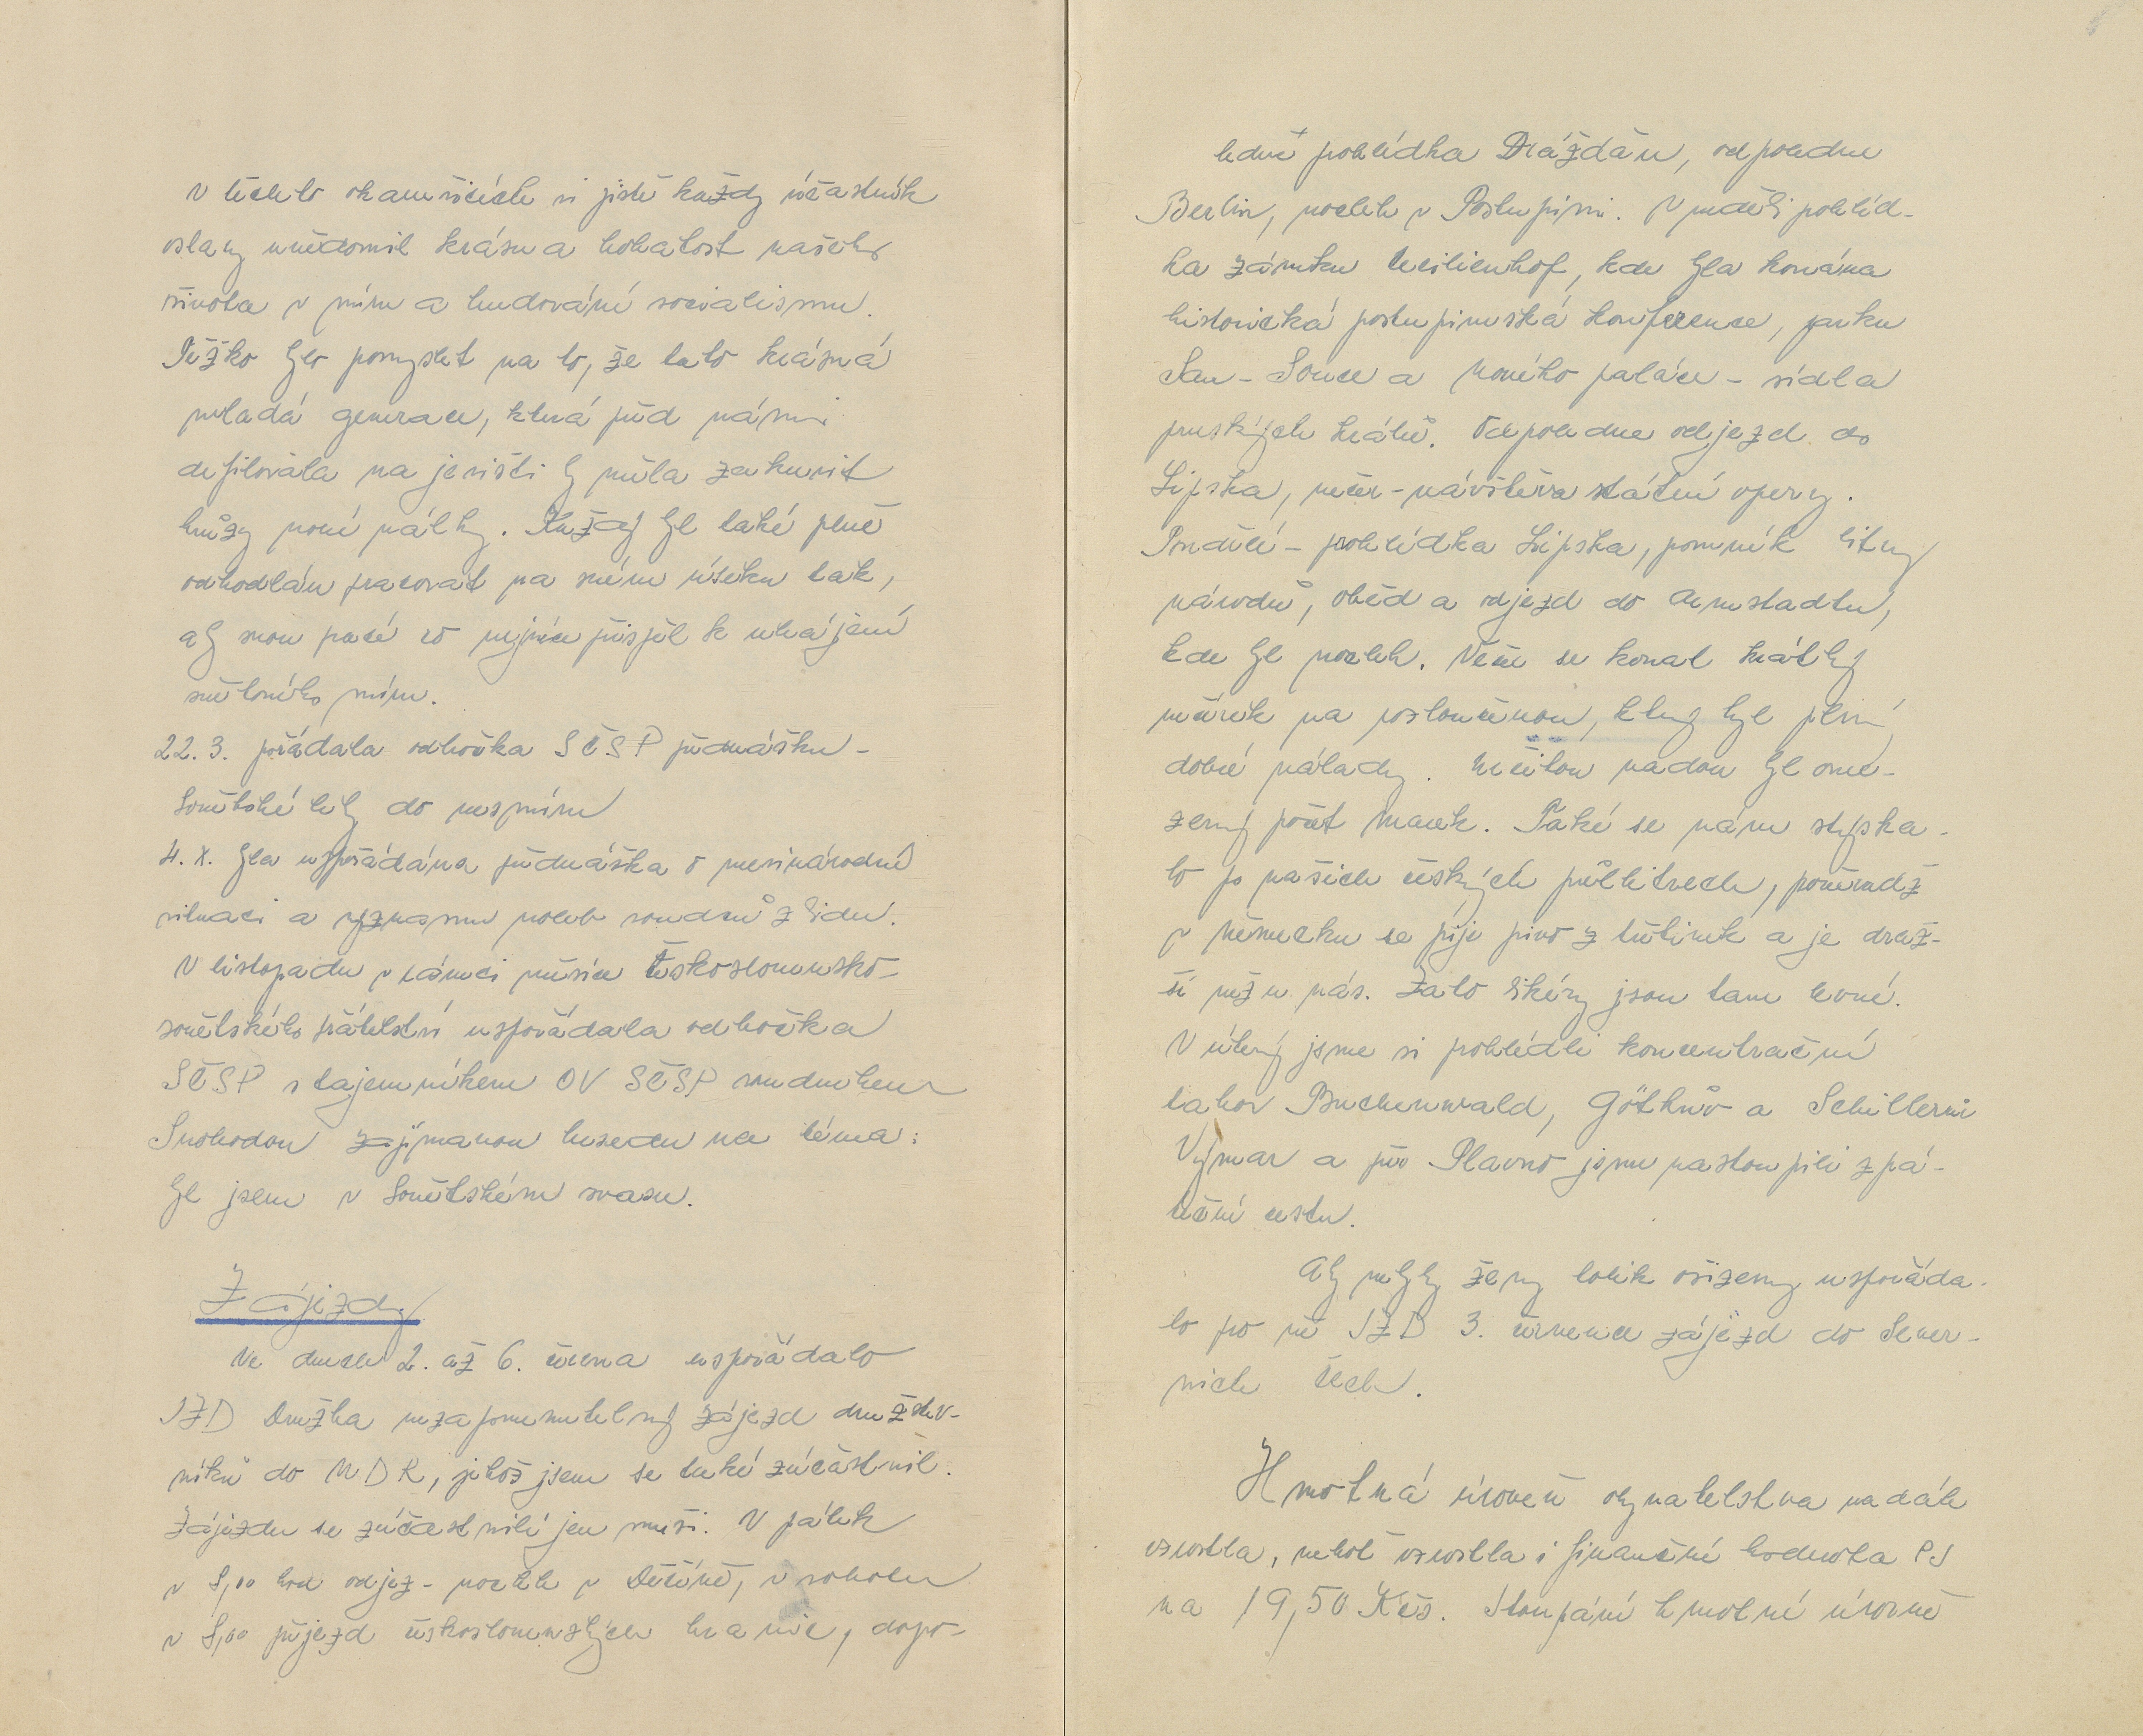 V těchto okamžicích si jistě každý účastník
oslavy uvědomil krásu a bohatost našeho
života v míru a budování socialismu.
Těžko bylo pomyslet na to, že tato krásná
mladá generace, která před námi
defilovala na jevišti by měla zakusit
hrůzy nové války. Každý byl také plně
odhodlán pracovat na svém úseku tak,
aby svou prací co nejvíce přispěl k uhájení
světového míru.
22. 3. pořádala odbočka SČSP přednášku -
Sovětské lety do vesmíru
4. X. byla uspořádána přednáška o mezinárodní
situaci a významu voleb soudců z lidu.
V listopadu v rámci měsíce Československo-
sovětského přátelství uspořádala odbočka
SČSP s tajemníkem OV SČSP soudruhem
Svobodou zajímavou besedu na téma:
Byl jsem v Sovětském svazu.
Zájezdy
Ve dnech 2. až 6. června uspořádalo
JZD Družba nezapomenutelný zájezd družstev-
níků do NDR, jehož jsem se také zúčastnil.
Zájezdu se zúčastnili jen muži. V pátek
v 8,00 hod odjez - nocleh v Děčíně, v sobotu
v 8,00 přjezd československých hranic, dopo-
ledne prohlídka Drážďan, odpoledne
Berlin, nocleh v Postupimi. V neděli prohlíd-
ka zámku Cecilienhof, kde byla konána
historická postupimská konference, parku
San - Souce a Nového paláce - sídla
pruských králů. Odpoledne odjezd do
Lipska, večer - návštěva státní opery.
Pondělí - prohlídka Lipska, pomník bitvy
národů, oběd a odjezd do Arnstadtu,
kde byl nocleh. Večer se konal krátký
večírek na rozloučenou, který byl plný
dobré nálady. Určitou vadou byl ome-
zený počet marek. Také se nám stýska-
lo po našich českých půllitrech, poněvadž
v Německu se pije pivo z třetinek a je draž-
ší než u nás. Zato likéry jsou tam levné.
V úterý jsme si prohlédli koncentrační
tabor Buchenwald, Götheův a Schillerův
Výmar a přes Plavno jsme nastoupili zpá-
teční cestu.
Aby nebyly ženy tolik ošizeny uspořáda-
lo pro ně JZD 3. července zájezd do Sever-
ních Čech.
Hmotná úroveň obyvatelstva nadále
vzrostla, neboť vzrostla i finanční hodnota PJ
na 19,50 Kčs. Stoupání hmotné úrovně